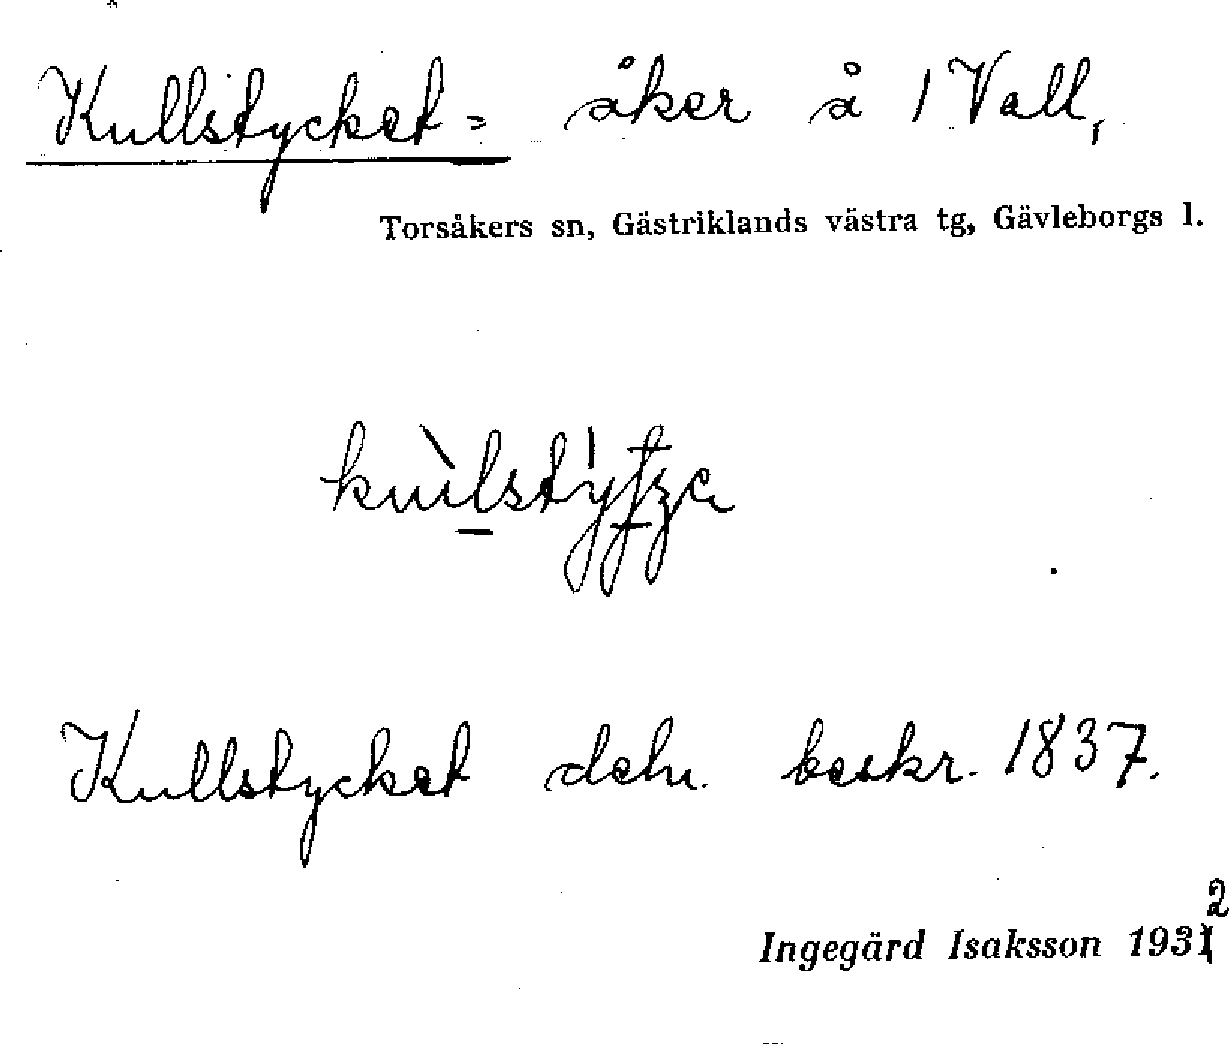 Kullstycket = åker å 1 Vall,
Torsåkers sn, Gästriklands västra tg, Gävleborgs l.
Kullstycket deln. beskr. 1837.
Ingegärd Isaksson 1932